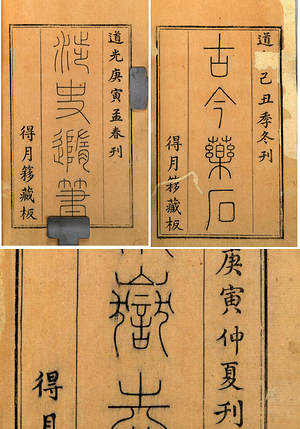 道光庚寅孟春刊
涉史隨筆
得月簃藏板
道
己丑季冬刊
古今藥石
得月簃藏板
庚寅仲夏刊
得月